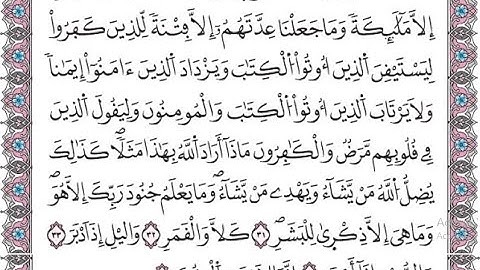 إِلَّا مَلَٰٓئِكَةٗ وَمَا جَعَلْنَا عِدَّتَهُمُۥٓ إِلَّا فِتْنَةٗ لِّلذِينَ كَفَرُواْ
لِيَسْتَيْقِنَ اَ۬لذِينَ أُوتُواْ اُ۬لْكِتَٰبَ وَيَزْدَادَ اَ۬لذِينَ ءَامَنُوٓاْ إِيمَٰناٗ
وَلَا يَرْتَابَ اَ۬لذِينَ أُوتُواْ اُ۬لْكِتَٰبَ وَالْمُومِنُونَ وَلِيَقُولَ اَ۬لذِينَ
فِے قُلُوبِهِم مَّرَضٞ وَالْكَٰفِرُونَ مَاذَآ أَرَادَ اَ۬للَّهُ بِهَٰذَا مَثَلاٗۖ كَذَٰلِكَ
يُضِلُّ اُ۬للَّهُ مَنْ يَّشَآءُ وَيَهْدِے مَنْ يَّشَآءُۖ وَمَا يَعْلَمُ جُنُودَ رَبِّكَ إِلَّا هُوَۖ
وَمَا هِيَ إِلَّا ذِكْر۪يٰ لِلْبَشَرِۖ ٣١ كَلَّا وَالْقَمَرِ ٣٢ وَاليْلِ إِذَ اَدْبَرَ ٣٣